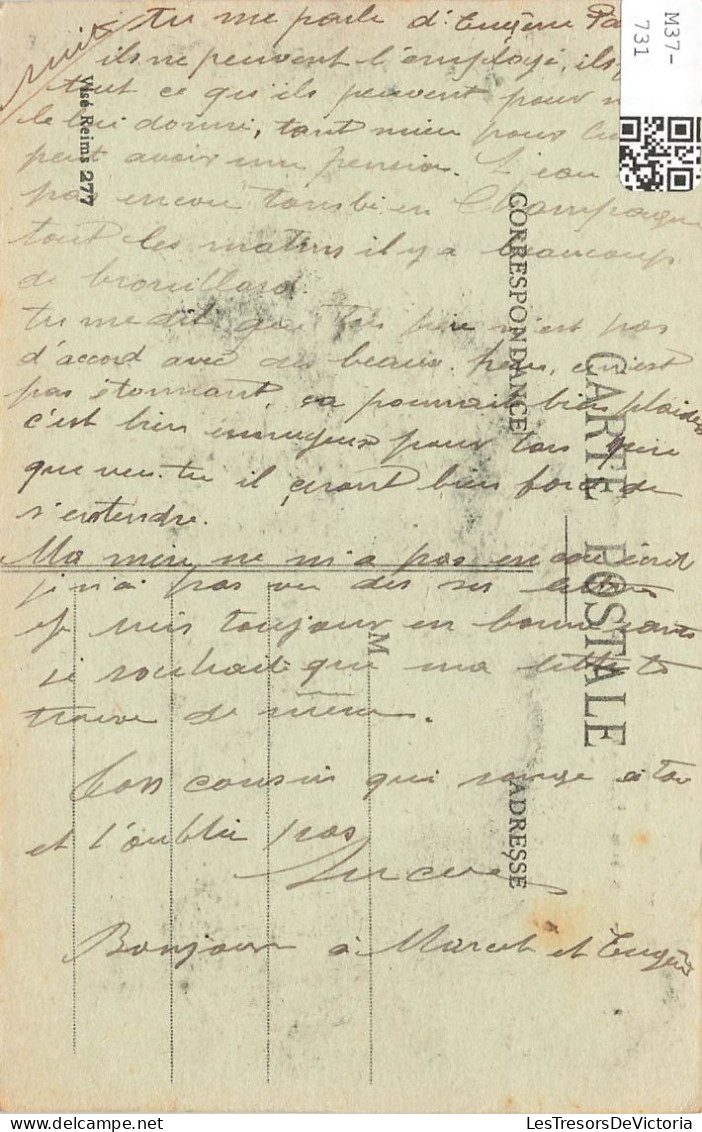 suis
tu me parle d'Eugène Pa
ils ne peuvent l'employé, ils
tout ce qu'ils peuvent pour
le lui donné, tant mieu pour lui
peut avoir une pension. L'eau
pas encore tombé en Champagne
tout les matins il y a beaucoup
de brouillard.
tu me dit que ton père n'est pas
d'accord avec des beaux pères, ce n'est
pas étonnant, ça pourrait bien plaider
c'est bien ennuyeux pour ton père
que veu-tu il seront bien forcé de
s'entendre.
Ma mère ne m'a pas encore écrit
je n'ai pas vu des ses lettres
je suis toujour en bonne santé
je souhait que ma lettre te
trouve de même.
Ton cousin qui songe à toi
et t'oubli pas
Lucien
Bonjour à Marcel et Eugène
CARTE POSTALE
CORRESPONDANCE
ADRESSE
M
Visé Reims 277
M37-
731
LesTresorsDeVictoria